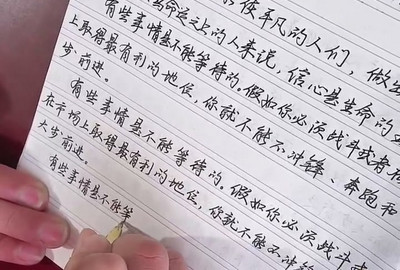 使平凡的人们，做出
命意义上的人来说，信心是生命的
有些事情是不能等待的。假如你必须战斗或者
上取得最有利的地位，你就不能不冲锋、奔跑和
步前进。
有些事情是不能等待的。假如你必须战斗或
在市场上取得最有利的地位，你就不能不冲锋
大步前进。
有些事情是不能等